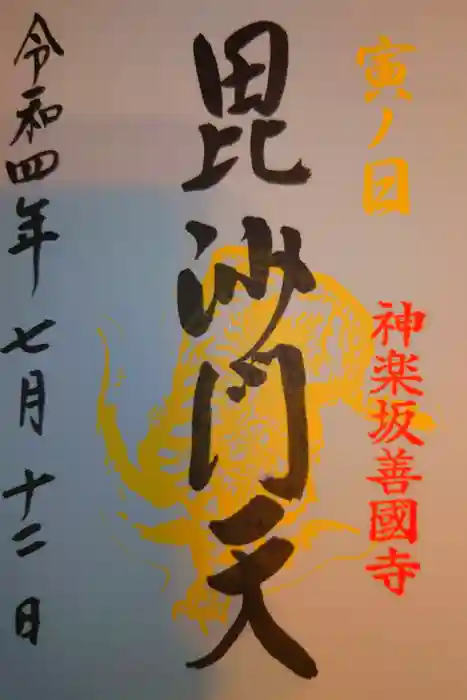 寅ノ日
神楽坂善國寺
毘沙門天
令和四年 七月 十二日